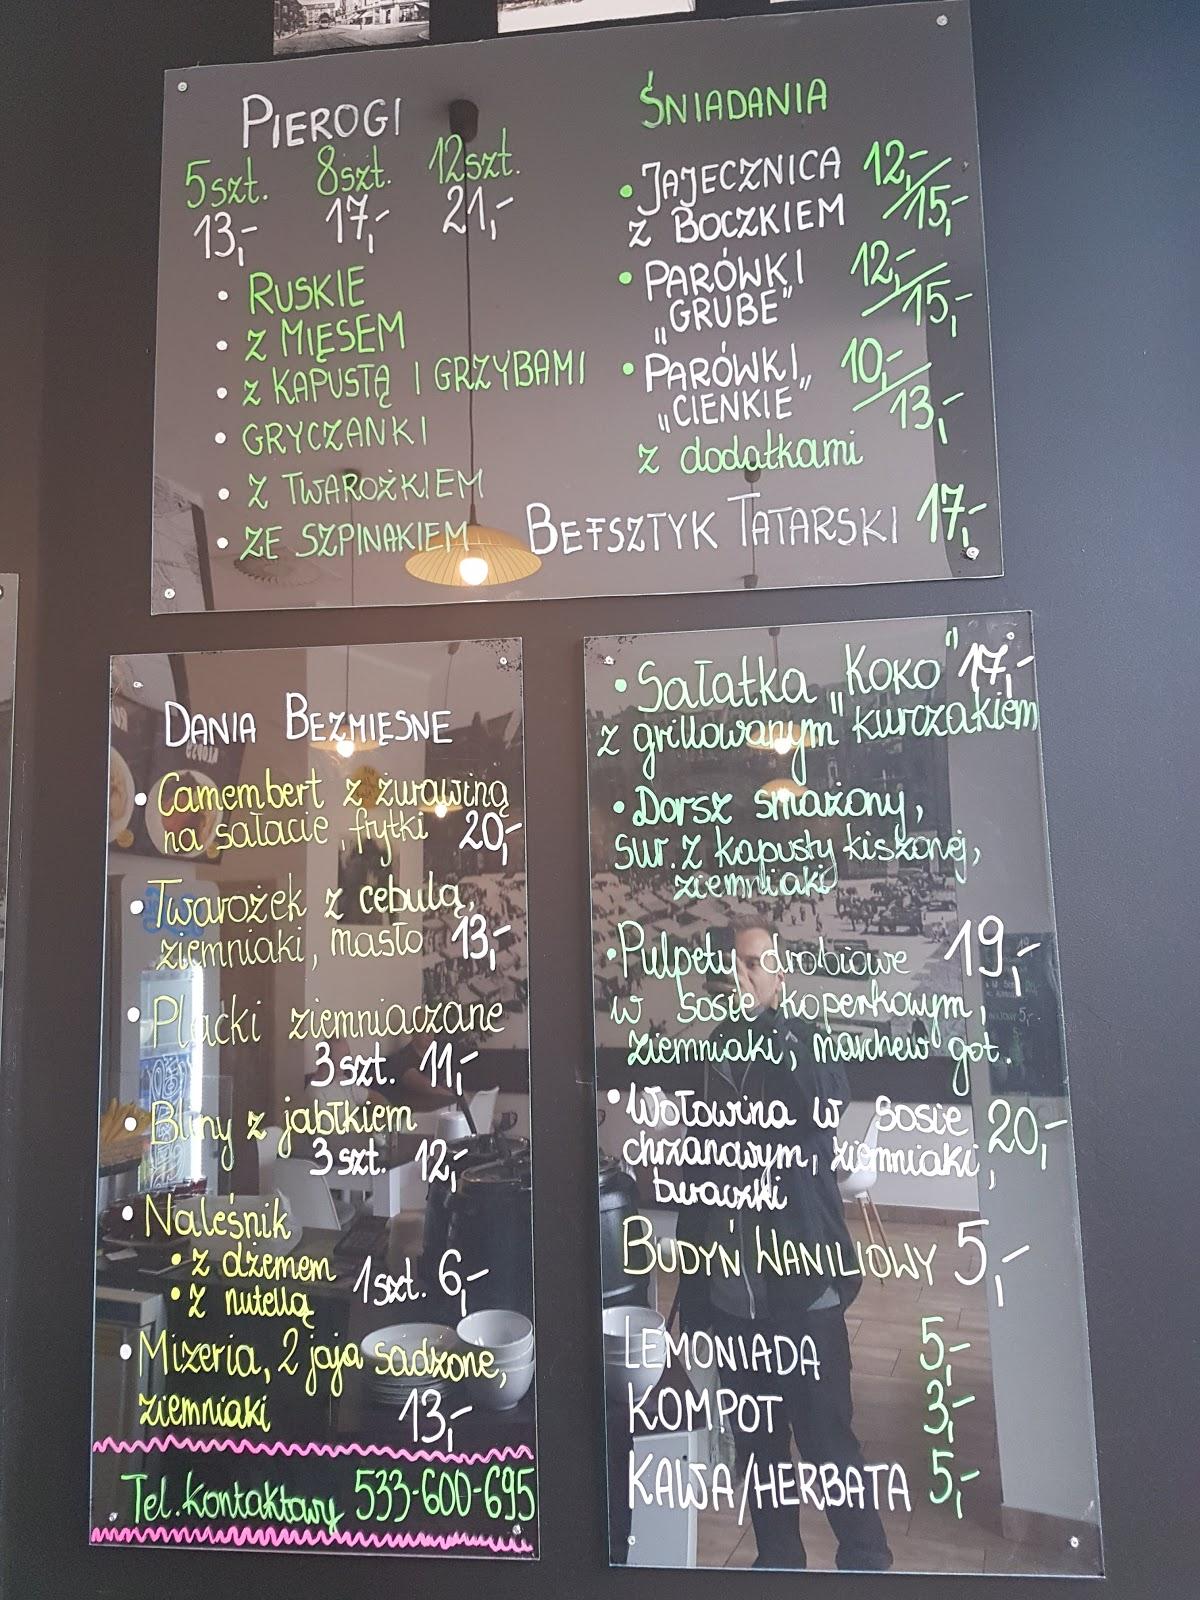 PIEROGI
5szt. 8szt. 12szt.
13,- 17,- 21,-
• RUSKIE
• Z MIĘSEM
• Z KAPUSTĄ I GRZYBAMI
• GRYCZANKI
• Z TWAROŻKIEM
• ZE SZPINAKIEM
ŚNIADANIA
• JAJECZNICA 12,-/15,-
Z BOCZKIEM
• PARÓWKI 12,-/15,-
„GRUBE"
• PARÓWKI„ 10,-/13,-
„CIENKIE"
z dodatkami
BEFSZTYK TATARSKI 17,-
DANIA BEZMIĘSNE
• Camembert z żurawiną
na sałacie, frytki 20,-
• Twarożek z cebulą,
ziemniaki, masło 13,-
• Placki ziemniaczane
3 szt. 11,-
• Bliny z jabłkiem
3 szt. 12,-
• Naleśnik
• z dżemem 1szt. 6,-
• z nutellą
• Mizeria, 2 jaja sadzone,
ziemniaki 13,-
Tel. kontaktowy 533-600-695
• Sałatka „Koko" 17,-
z grillowanym kurczakiem
• Dorsz smażony,
sur. z kapusty kiszonej,
ziemniaki
• Pulpety drobiowe 19,-
w sosie koperkowym,
ziemniaki, marchew got.
• Wołowina w sosie 20,-
chrzanowym, ziemniaki,
buraczki
BUDYŃ WANILIOWY 5,-
LEMONIADA 5,-
KOMPOT 3,-
KAWA/HERBATA 5,-